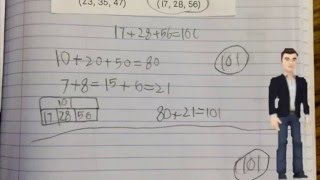 (23, 35, 47) (17, 28, 56)
17+28+56=101
10+20+50=80
101
7+8=15+6=21
101
17 28 56
80+21=101
101